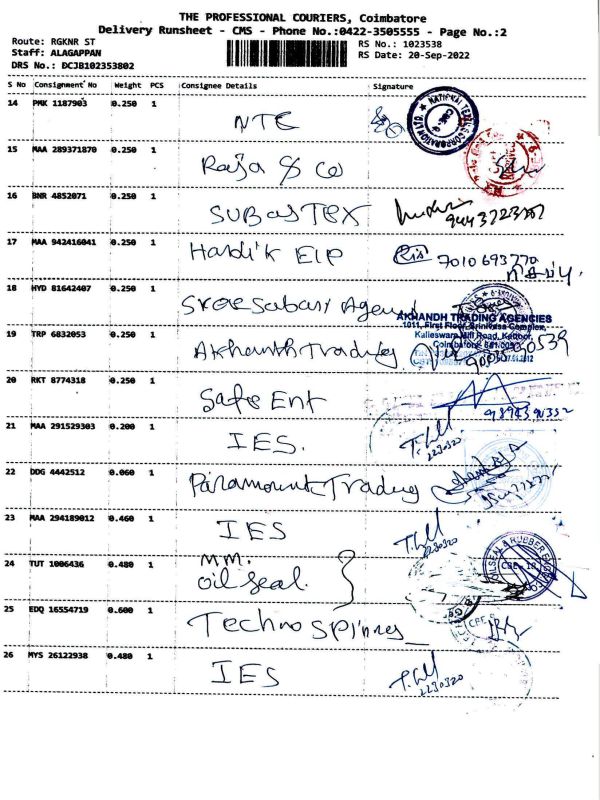 THE PROFESSIONAL COURIERS, Coimbatore
Delivery Runsheet - CMS - Phone No.:0422-3505555 - Page No.:2
Route: RGKNR ST
RS No.: 1023538
Staff: ALAGAPPAN
RS Date: 20-Sep-2022
DRS No.: DCJB102353802
S No Consignment No Weight PCS Consignee Details Signature
14 PMK 1187903 0.250 1 NTC
15 MAA 289371870 0.250 1 Raja & Co
16 BNR 4852071 0.250 1 SUBAS TEX
17 MAA 942416041 0.250 1 Hardik EIP 7010693770
18 HYD 81642407 0.250 1 Sree Sabari
AKHANDH TRADING AGENCIES
1011, First Floor, Srinivasa Complex,
Kalieswara Mill Road, Kattoor,
19 TRP 6832053 0.250 1 Akhanth Trading
20 RKT 8774318 0.250 1 Safe Ent
21 MAA 291529303 0.200 1 IES.
2230320
22 DDG 4442512 0.060 1 Paramount Trading
23 MAA 294189012 0.460 1 IES
2230320
24 TUT 1006436 0.480 1 M.M.
oil seal
25 EDQ 16554719 0.600 1 Techno Spinners
26 MYS 26122938 0.480 1 IES
2230320